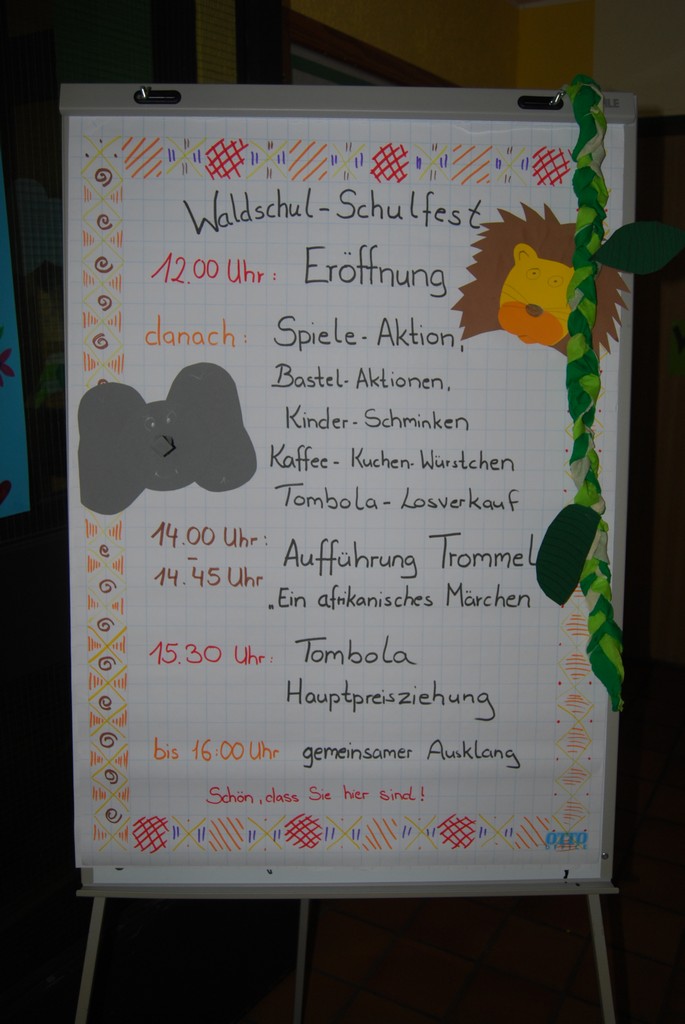 Waldschul-Schulfest
12.00 Uhr: Eröffnung
danach: Spiele-Aktion,
Bastel-Aktionen,
Kinder-Schminken
Kaffee-Kuchen-Würstchen
Tombola-Losverkauf
14.00 Uhr:
-
14.45 Uhr
Aufführung Trommel
„Ein afrikanisches Märchen
15.30 Uhr: Tombola
Hauptpreisziehung
bis 16:00 Uhr gemeinsamer Ausklang
Schön, dass Sie hier sind!
OTTO
OFFICE